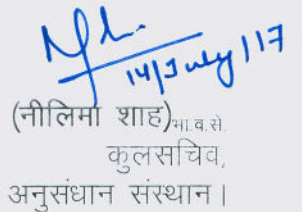 14/July/17
(नीलिमा शाह)भा.व.से.
कुलसचिव,
अनुसंधान संस्थान।